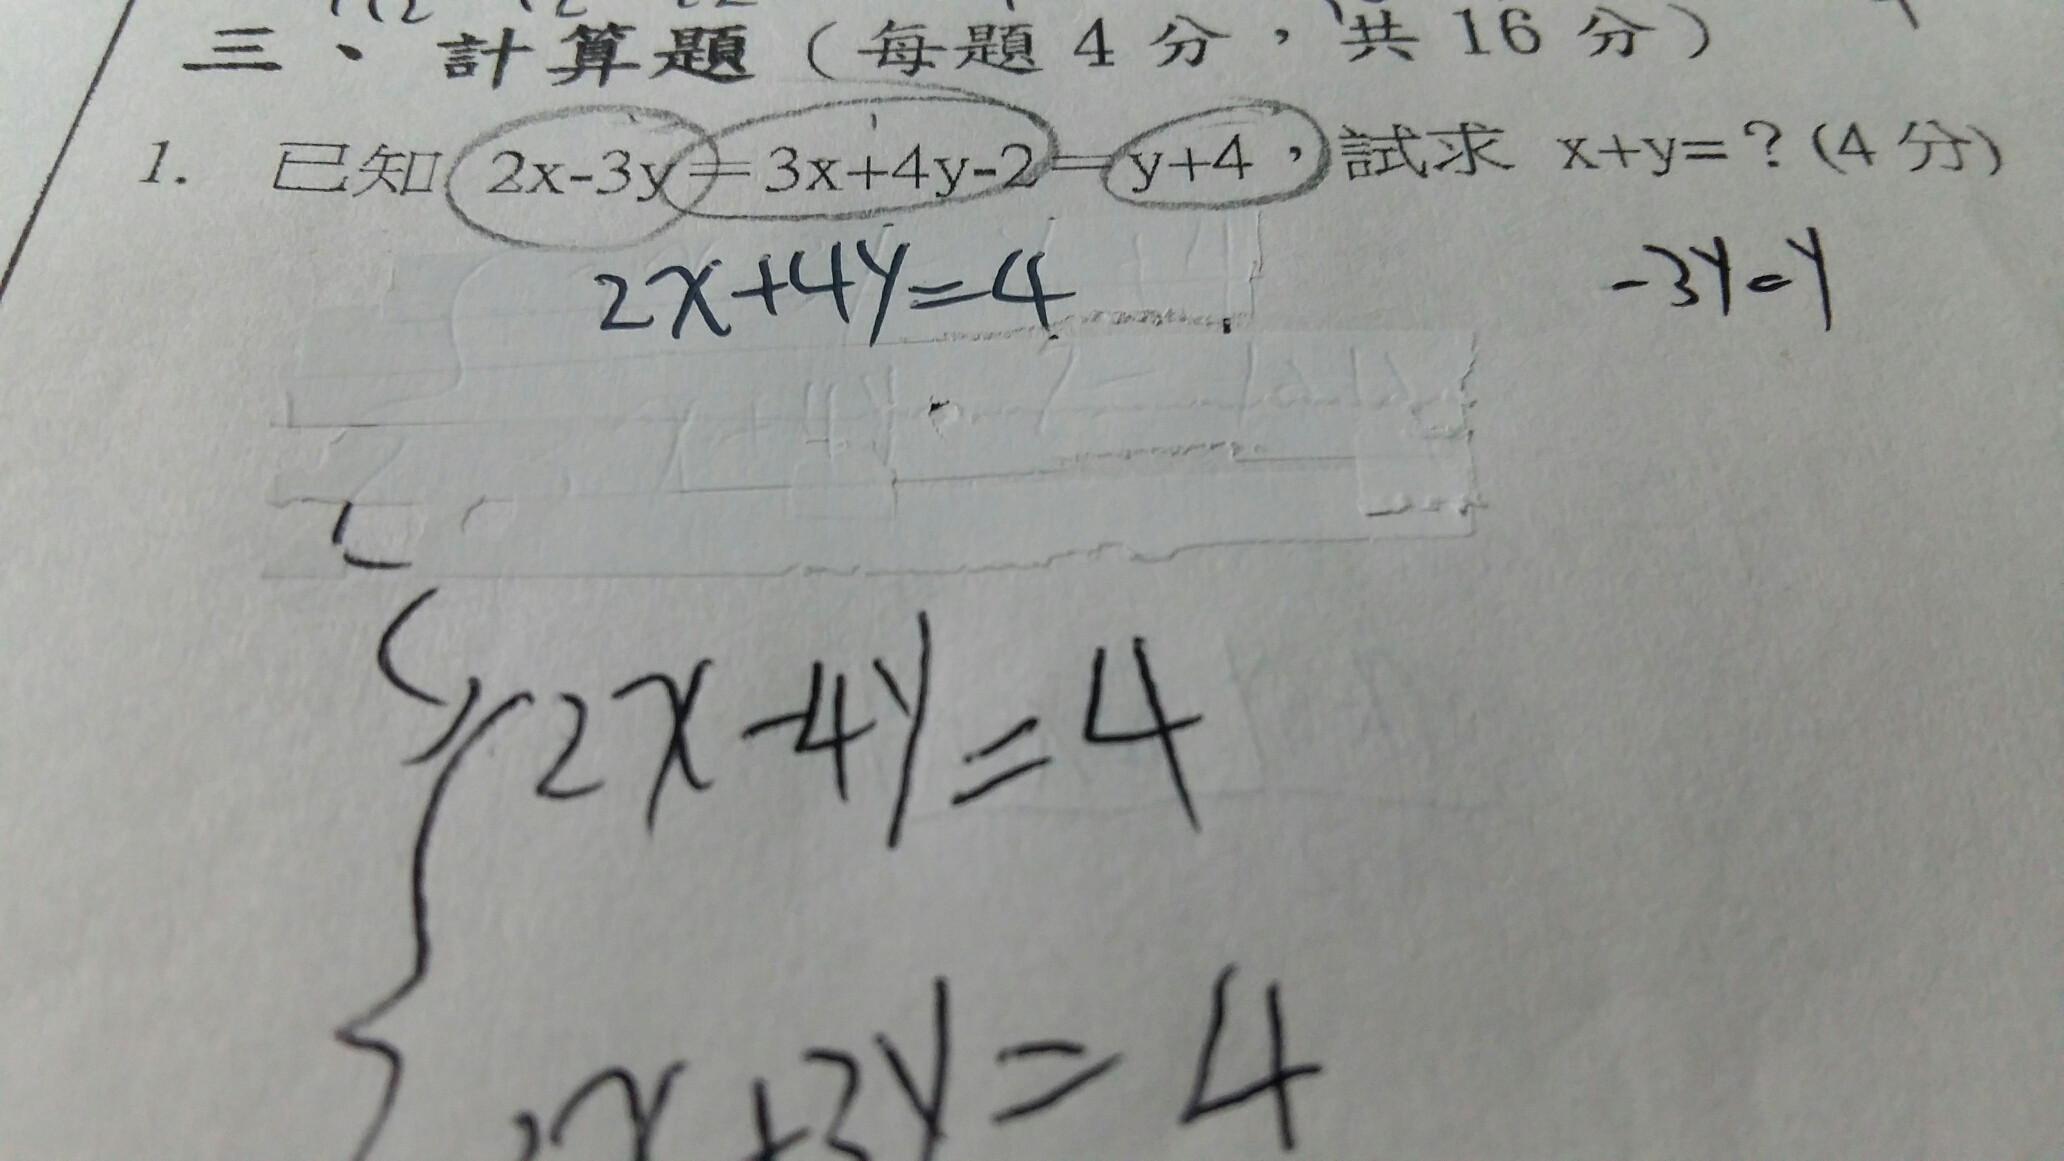 三、計算題（每題 4 分，共 16 分）
1. 已知 2x-3y=3x+4y-2=y+4，試求 x+y=？(4 分)
2x+4y=4
-3y=y
2x-4y=4
x+3y=4